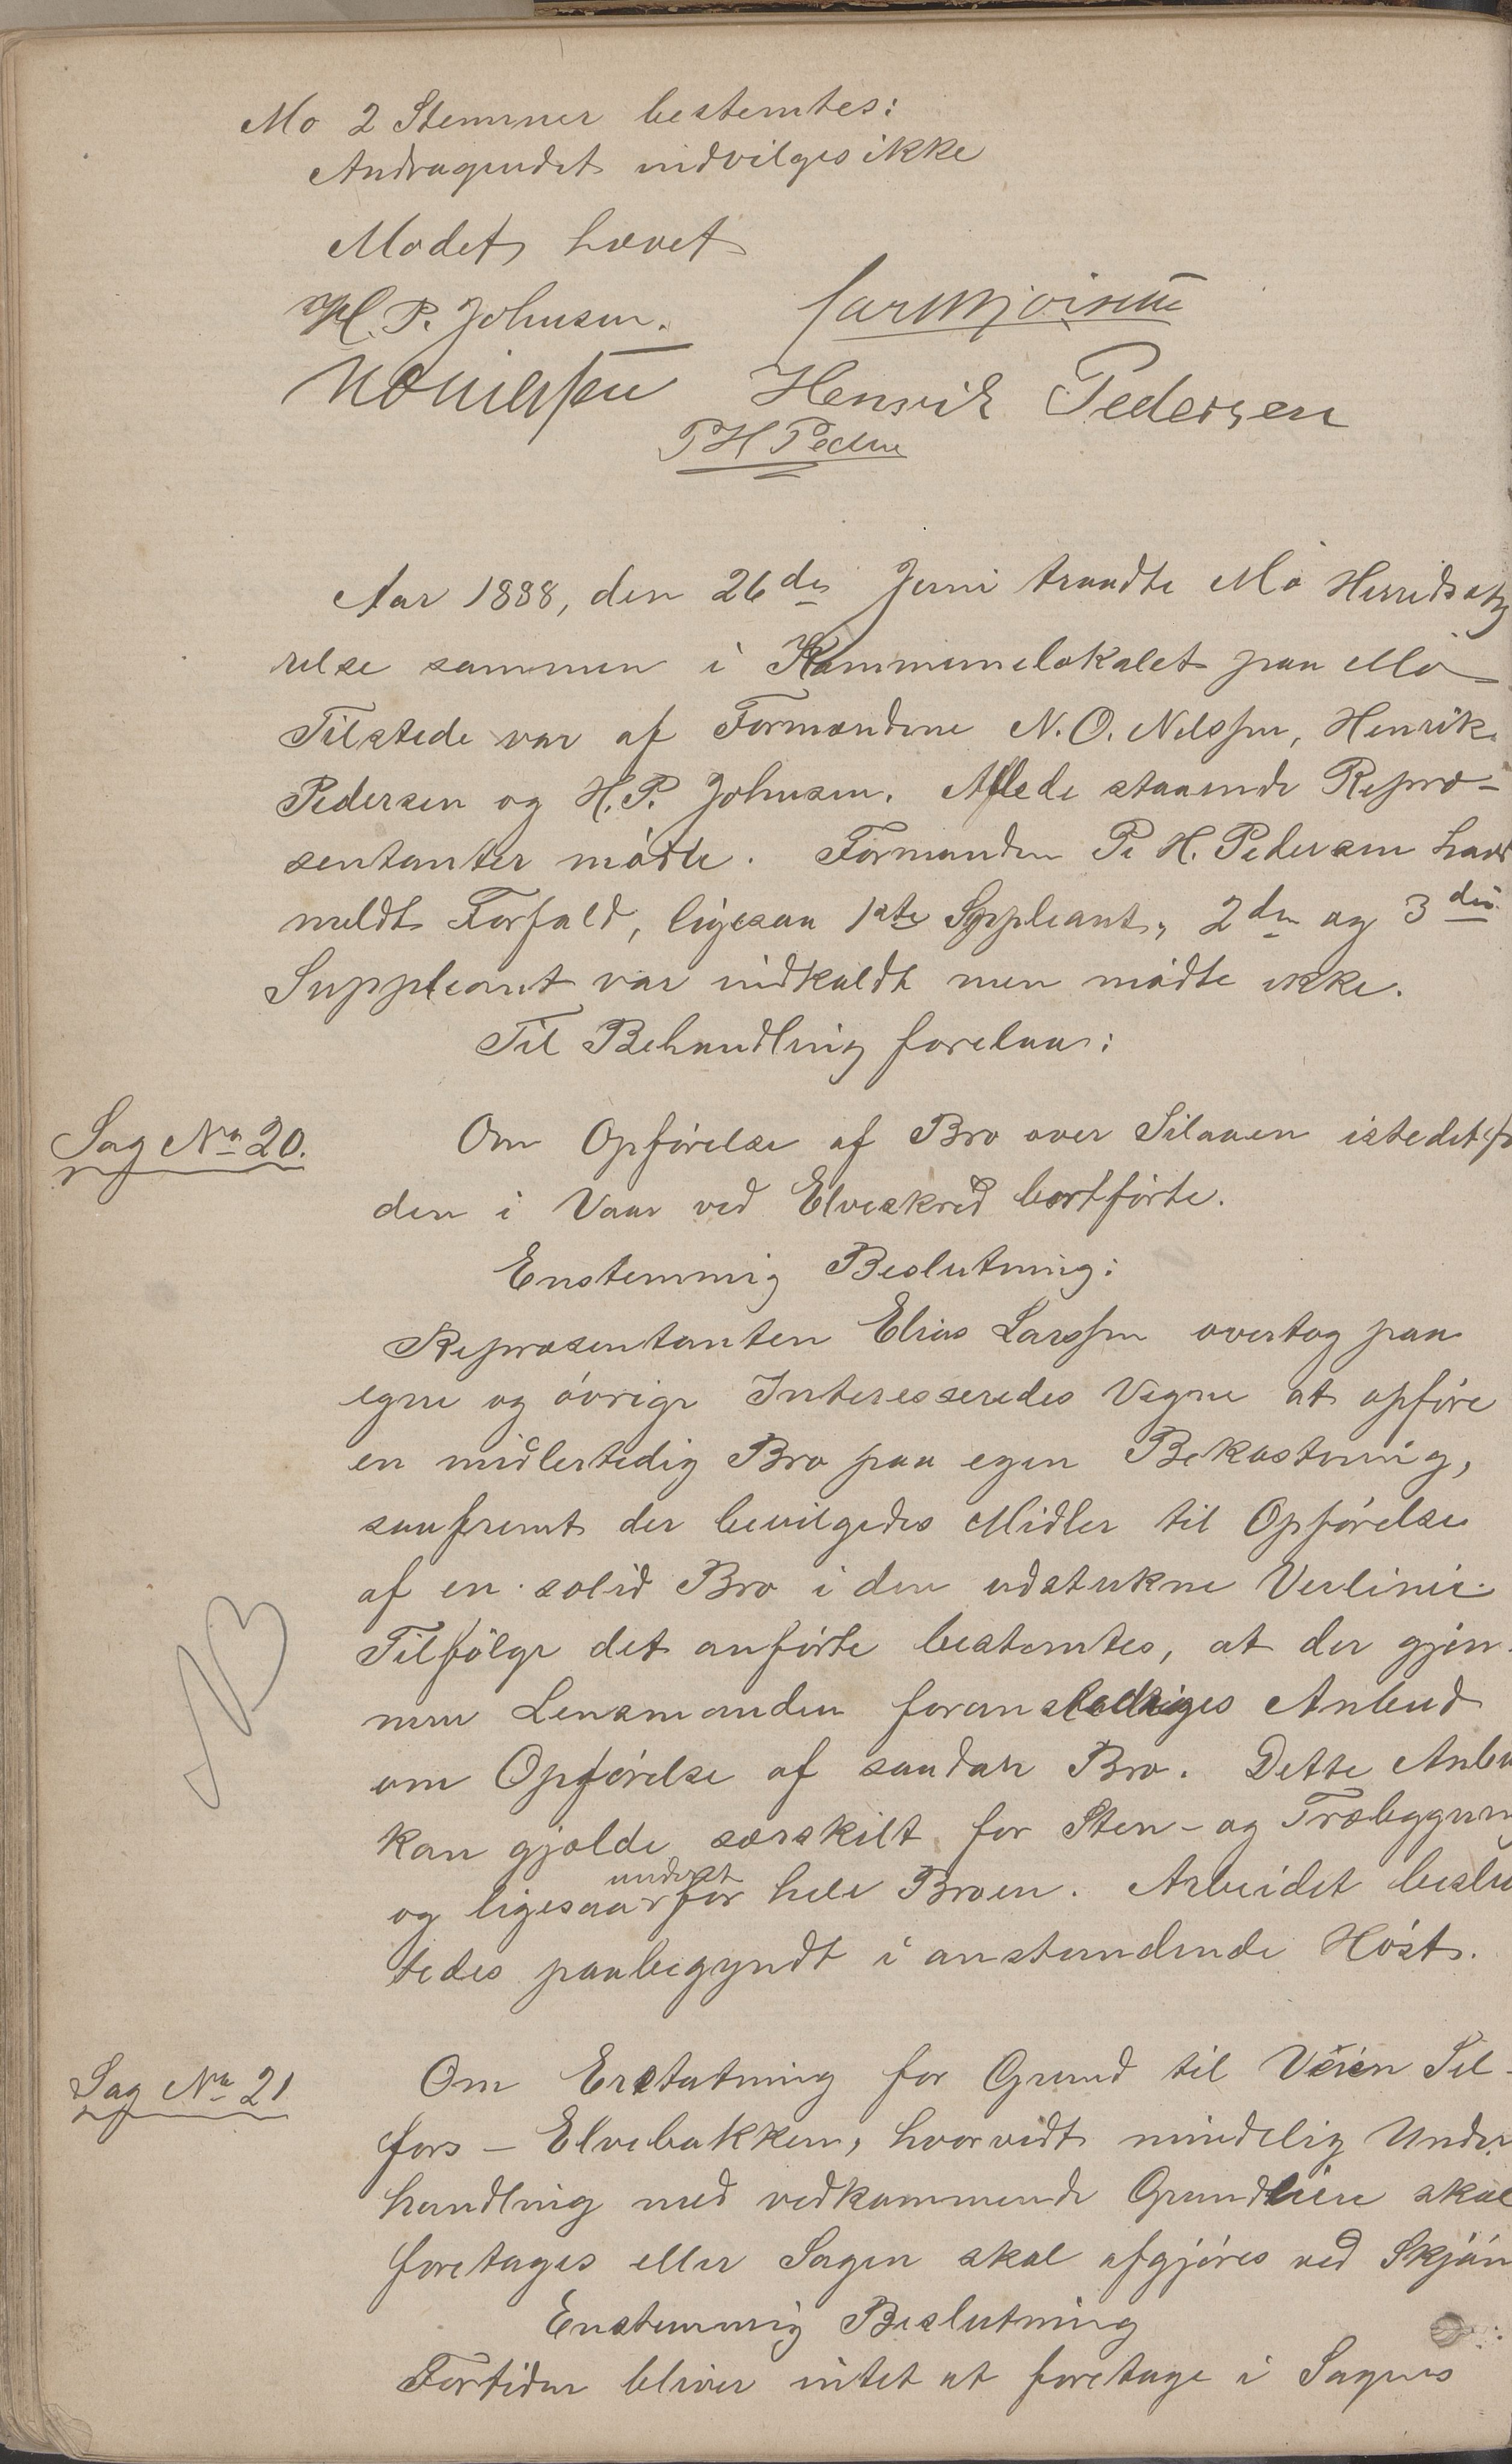 Mo 2 Stemmer bestemtes:
Andragendet indvilges ikke
Mødet hævet
H. P. Johnsen.
NONielssen Henrik Pedersen
PH Peder
Aar 1888, den 26de Juni traadte Mo Herredssty
relse sammen i Kommunelokalet paa Mo
Tilstede var af Formændene N. O. Nilssen, Henrik
Pedersen og H. P. Johnsen. Allede staaende Repræ-
sentanter mødte. Formanden P. H. Pedersen havd
meldt Forfald, ligesaa 1ste Suppleant, 2den og 3die
Suppleant var indkaldt men mødte ikke.
Til Behandling forelaa:
Sag No 20.
Om Opførelse af Bro over Silaaen istedetfo
den i Vaar ved Elveskred bortførte.
Enstemmig Beslutning:
Repræsentanten Elias Larssen overtog paa
egne og øvrige Interesseredes Vegne at opføre
en midlertidig Bro paa egen Bekostning,
saafremt der bevilgedes Midler til Opførelse
af en solid Bro i den udstukne Veilinie.
NB
Tilfølge det anførte bestemtes, at der gjen-
nem Lensmanden foranstaltiges Anbud
om Opførelse af saadan Bro. Dette Anbu
kan gjælde særskilt for Sten- og Træbyggnin
underet
og ligesaa for hele Broen. Arbeidet beslu
tedes paabegyndt i anstundende Høst.
Sag No 21
Om Erstatning for Grund til Veien Sel-
fors - Elvebakken, hvorvidt mindelig Under
handling med vedkommende Grundeiere skal
foretages eller Sagen skal afgjøres ved Skjøn
Enstemmig Beslutning
Fortiden bliver intet at foretage i Sagens